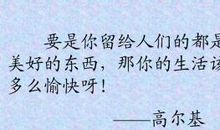 要是你留给人们的都是
美好的东西，那你的生活该
多么愉快呀！
——高尔基